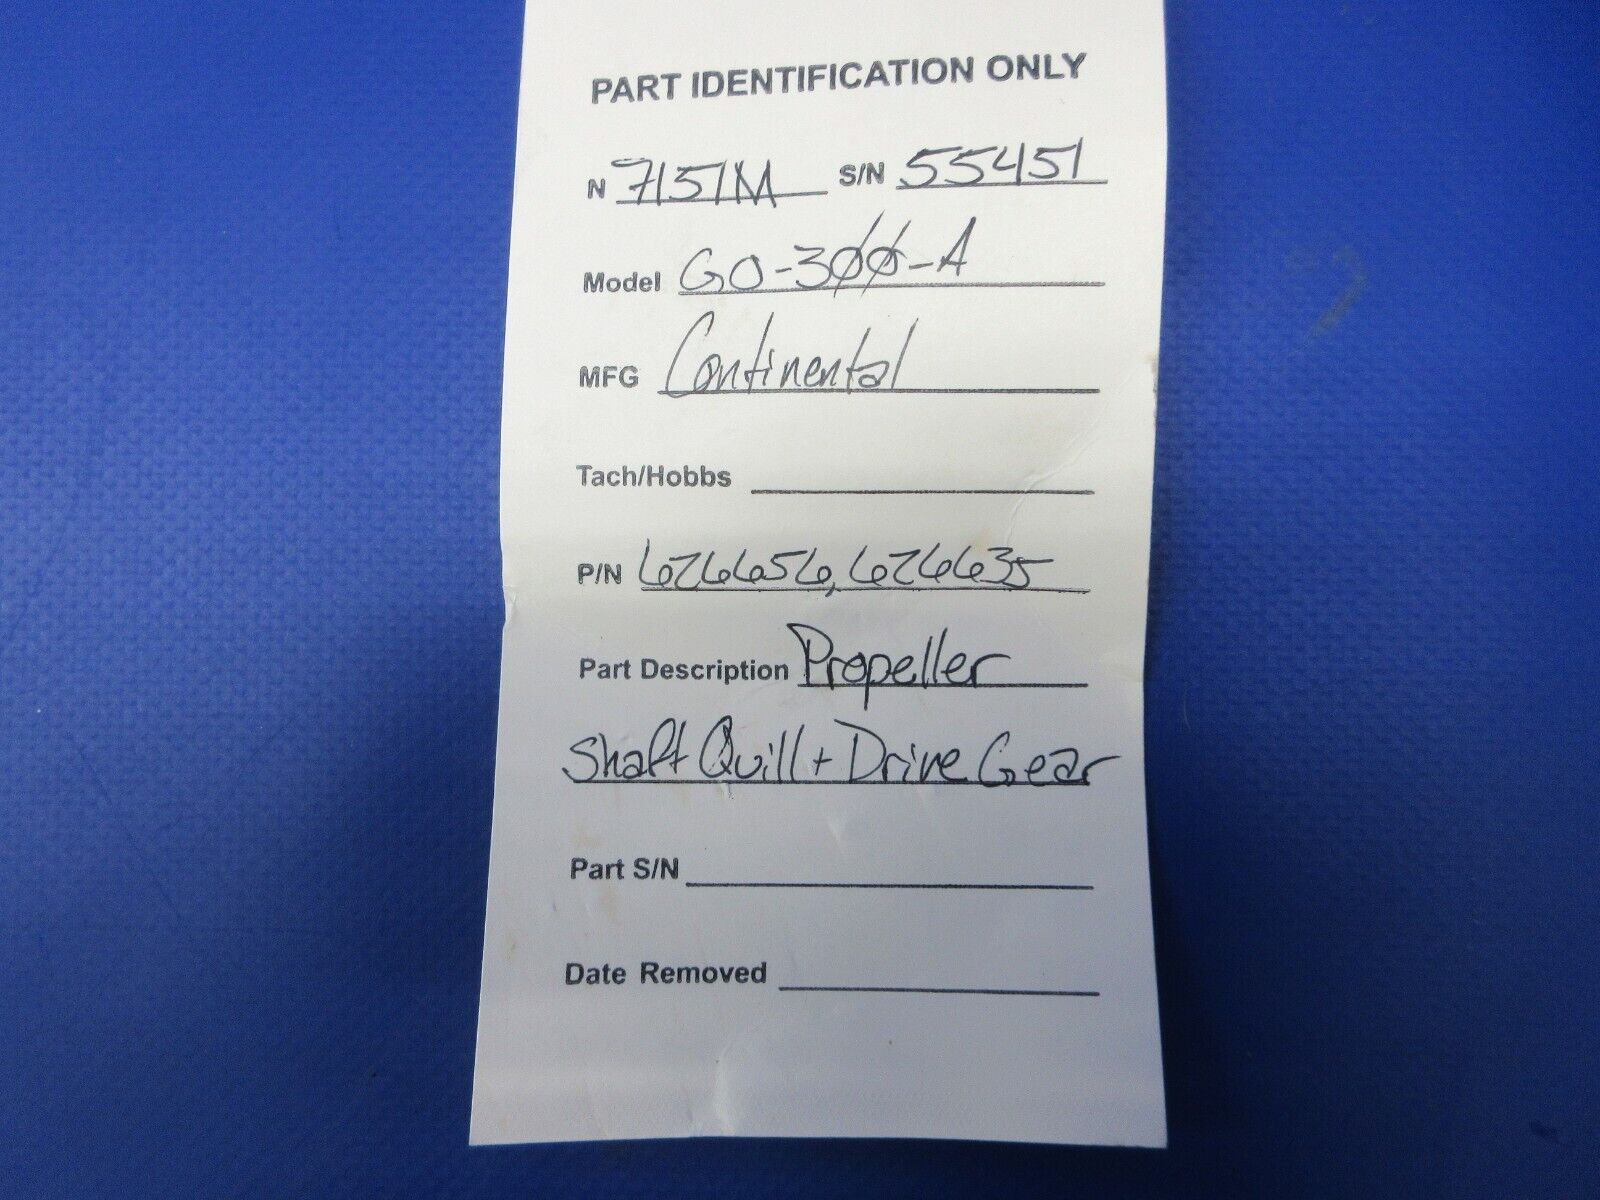 PART IDENTIFICATION ONLY
N 7151M S/N 55451
Model GO-300-A
MFG Continental
Tach/Hobbs
P/N 626656, 626635
Part Description Propeller
Shaft Quill + Drive Gear
Part S/N
Date Removed